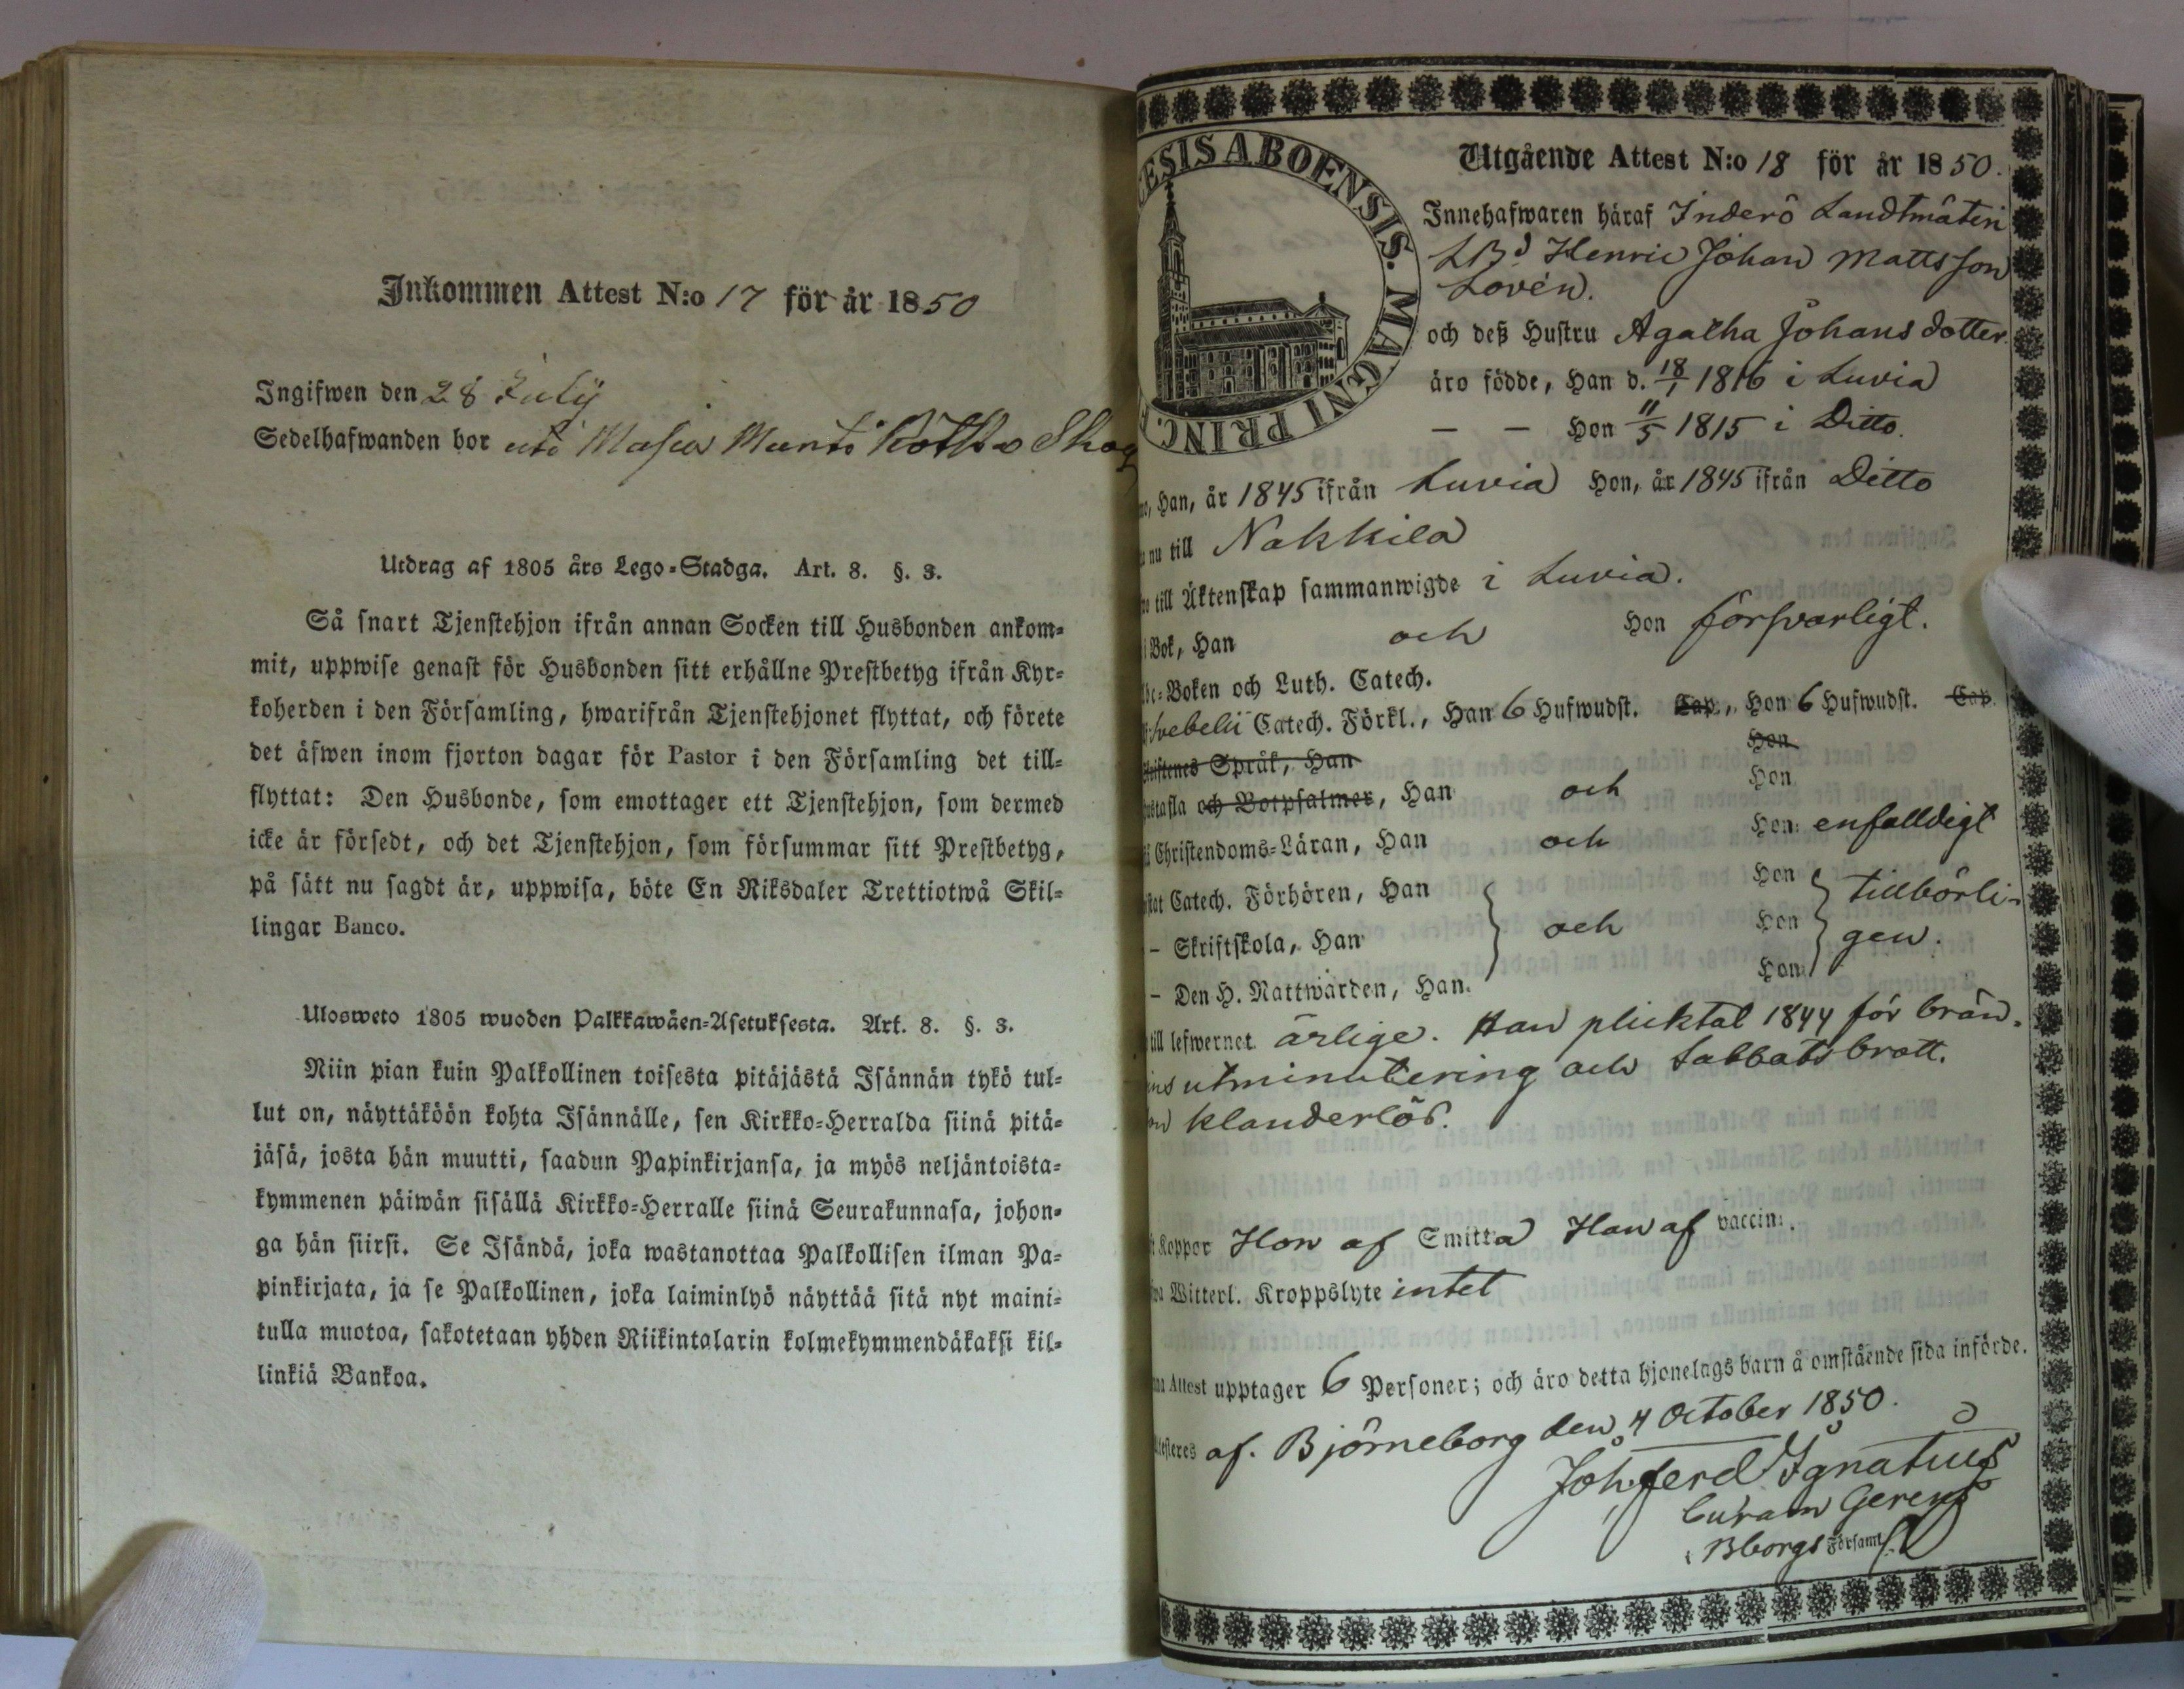 Inkommen Attest N:o 17 för år 1850
Ingifwen den 28 July
Sedelhafwanden bor
Utdrag af 1805 års Lego-Stadga. Art. 8. §. 3.
Så snart Tjenstehjon ifrån annan Socken till Husbonden ankom-
mit, uppwise genast för Husbonden sitt erhållne Prestbetyg ifrån Kyr-
koherden i den Församling, hwarifrån Tjenstehjonet flyttat, och förete
det äfwen inom fjorton dagar för Pastor i den Församling det till-
flyttat: Den Husbonde, som emottager ett Tjenstehjon, som dermed
icke är försedt, och det Tjenstehjon, som försummar sitt Prestbetyg,
på sätt nu sagdt är, uppwisa, böte En Riksdaler Trettiotwå Skil-
lingar Banco.
Ulosweto 1805 wuoden Palkkawäen-Asetuksesta. Art. 8. §. 3.
Niin pian kuin Palkollinen toisesta pitäjästä Isännän tykö tul-
lut on, näyttäköön kohta Isännälle, sen Kirkko-Herralda siinä pitä-
jäsä, josta hän muutti, saadun Papinkirjansa, ja myös neljäntoista-
kymmenen päiwän sisällä Kirkko-Herralle siinä Seurakunnasa, johon-
ga hän siirsi. Se Isändä, joka wastanottaa Palkollisen ilman Pa-
pinkirjata, ja se Palkollinen, joka laiminlyö näyttää sitä nyt maini-
tulla muotoa, sakotetaan yhden Riikintalarin kolmekymmendäkaksi kil-
linkiä Bankoa.
ESIS ABOENSIS. MAGNI PRINC.
Utgående Attest N:o 18 för år 1850.
Innehafwaren häraf Inderö Landtmäteri
Henric Johan Mattsson
Lovén.
och deß Hustru Agatha Johansdotter.
äro födde, Han d. 18/1 1816 i Luvia
— — Hon 11/5 1815 i Ditto.
Han, år 1845 ifrån Luvia Hon, år 1845 ifrån Ditto
nu till Nakkila
till Äktenskap sammanwigde i Luvia.
i Bok, Han och Hon försvarligt.
Boken och Luth. Catech.
Svebelii Catech. Förkl., Han 6 Hufwudst. Cap., Hon 6 Hufwudst. Cap.
Språk, Han Hon
och Botpsalmer, Han och Hon
Christendoms-Läran, Han och Hon enfalldigt
Catech. Förhören, Han Hon tillbörli-
– Skriftskola, Han och Hon gen.
– Den H. Nattwarden, Han Hon
till lefwernet ärlige. Han pliktat 1844 för brän-
utminutering och Sabbatsbrott.
klanderlös.
Koppor Hon af Smitta Han af vaccin.
Witterl. Kroppslyte intet
Attest upptager 6 Personer; och äro detta hjonelags barn å omstående sida införde.
af. Björneborg den 4 October 1850.
Joh. Ferd Ignatius
Curam Gerens
i Bborgs Församl.